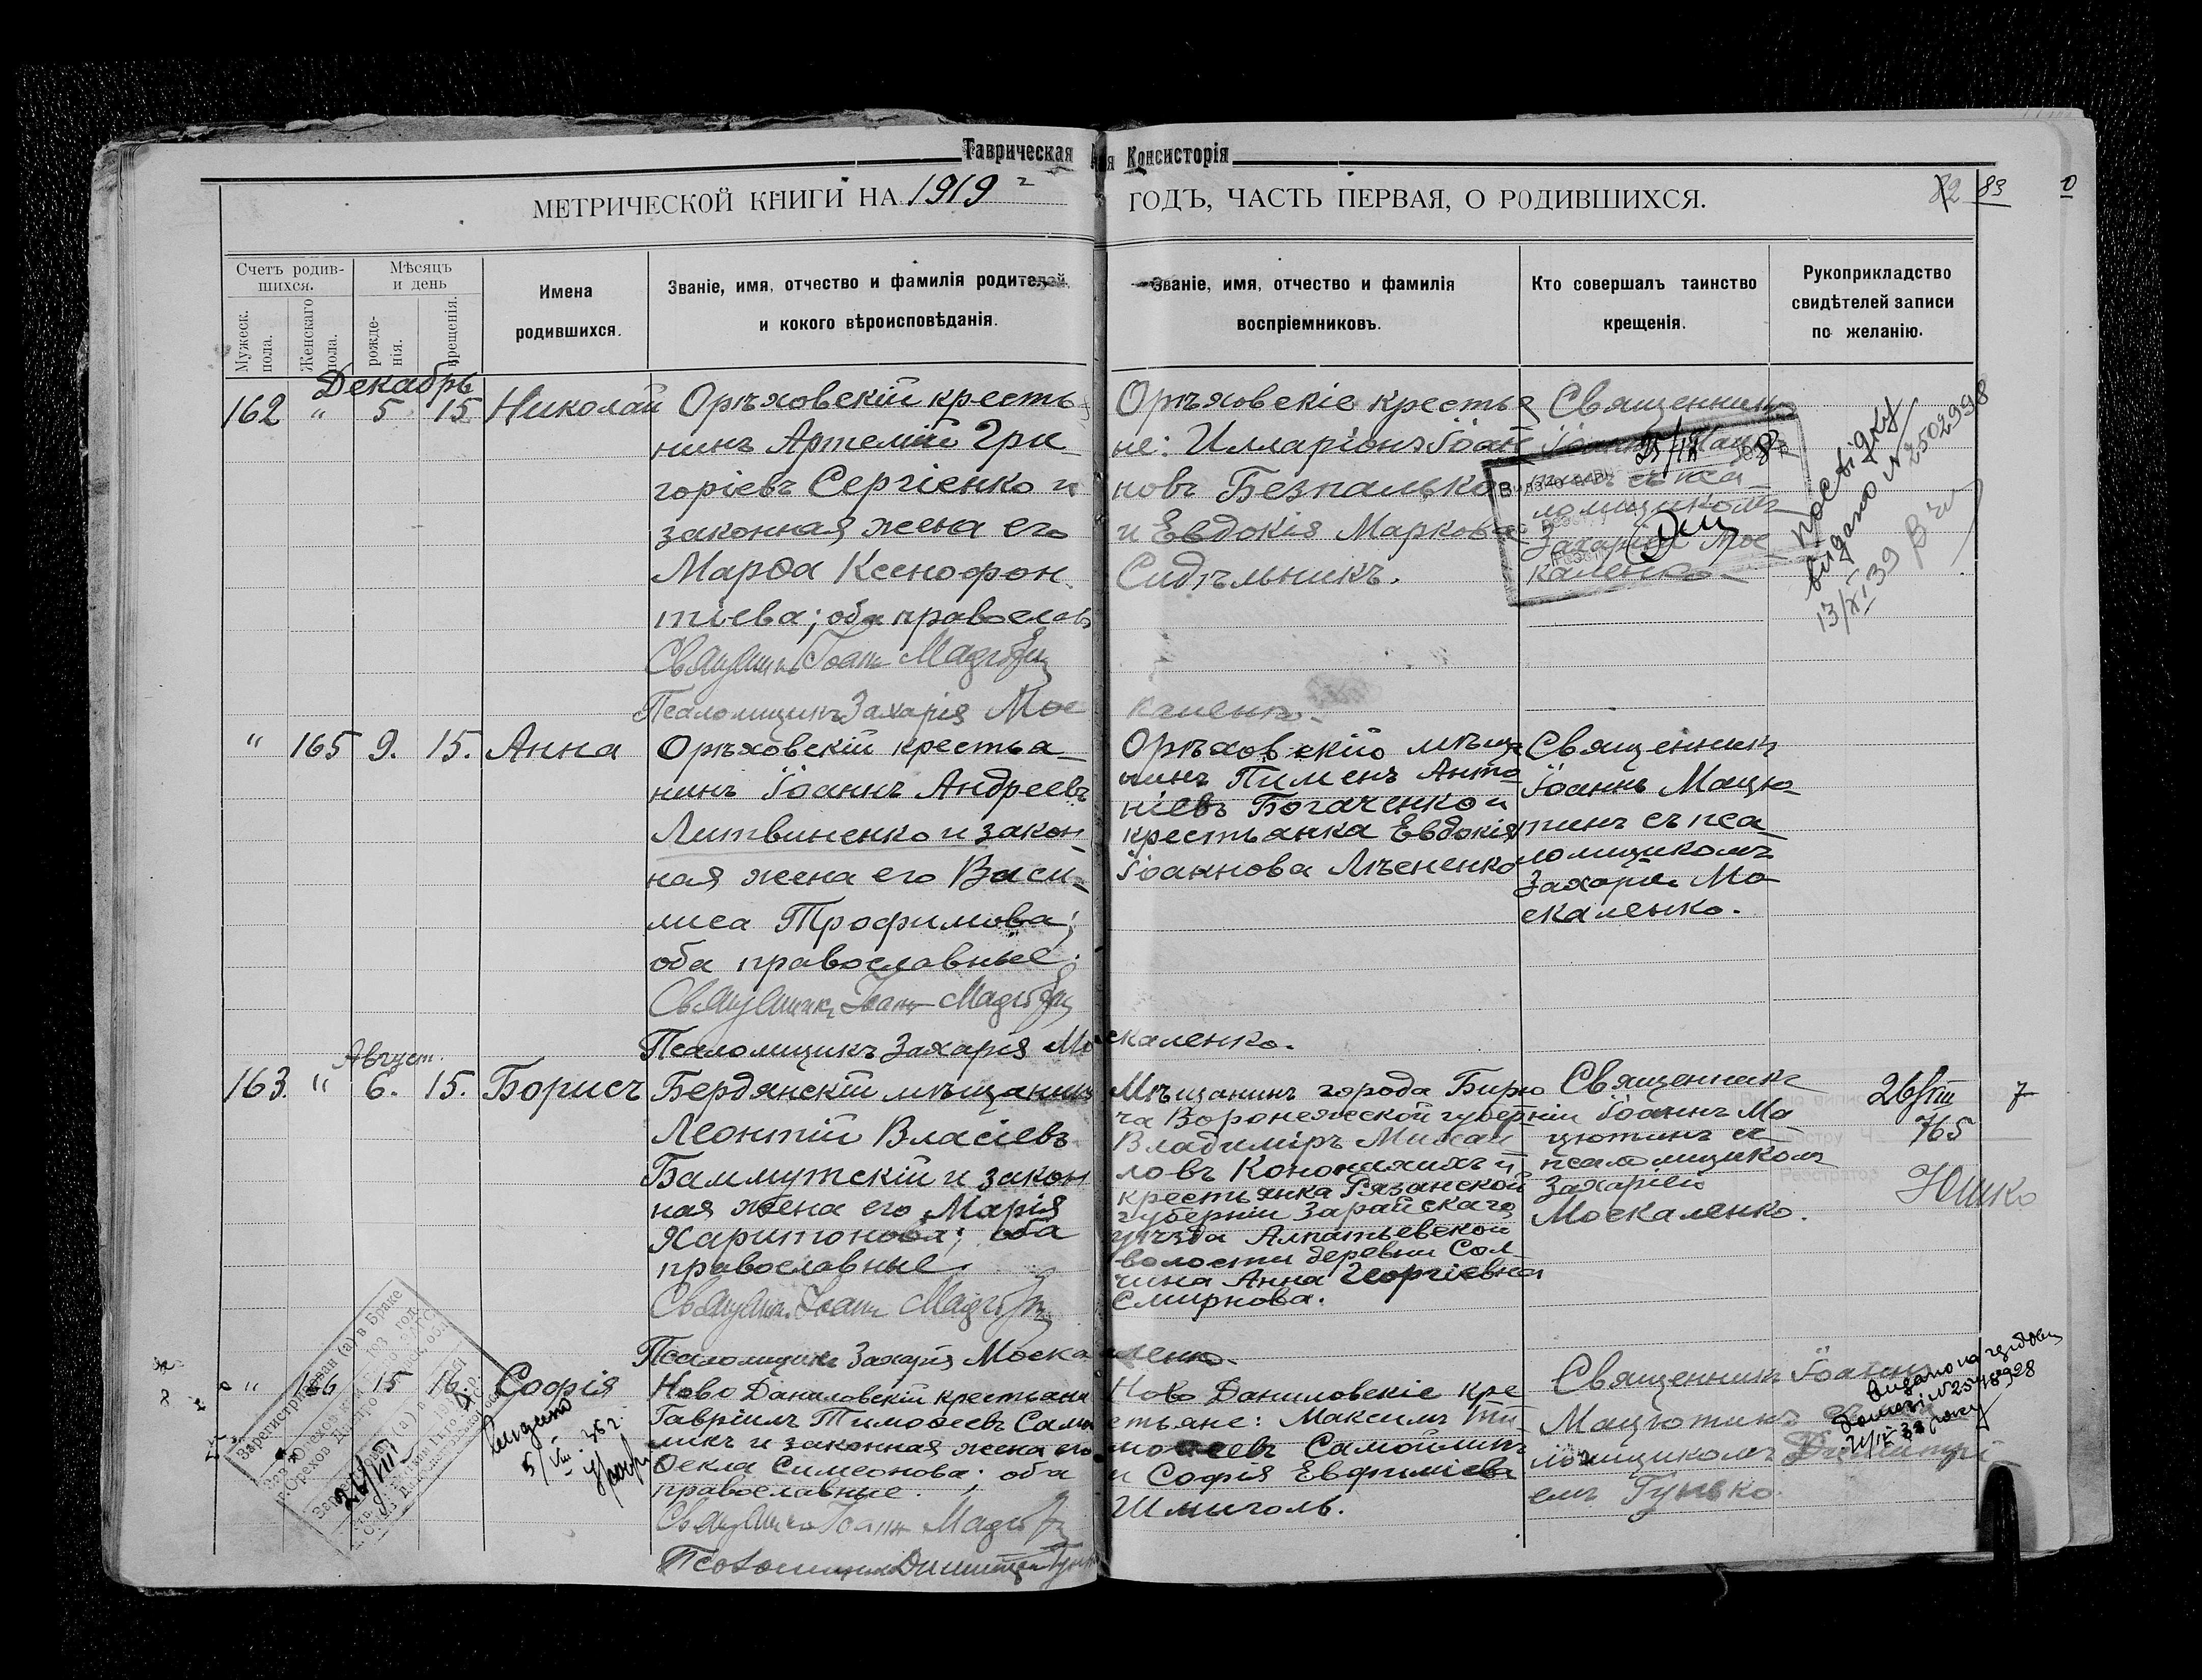 Таврическая
Консисторія
МЕТРИЧЕСКОЙ КНИГИ НА 1919 г
ГОДЪ, ЧАСТЬ ПЕРВАЯ, О РОДИВШИХСЯ.
83
Счетъ родив-
шихся.
Мѣсяцъ
и день
Мужеск.
пола.
Женскаго
пола.
рожде-
нія.
крещенія.
Имена
родившихся.
Званіе, имя, отчество и фамилія родителей,
и кокого вѣроисповѣданія.
Званіе, имя, отчество и фамилія
воспріемниковъ.
Кто совершалъ таинство
крещенія.
Рукоприкладство
свидѣтелей записи
по желанію.
Декабрь
162 " 5 15 Николай
Орѣховскій кресть-
нинъ Артемій Гри-
горіевъ Сергіенко и
законная жена его
Марѳа Ксенофон-
тіева; оба православ
Священникъ Іоаннъ
Псаломщикъ Захарія Мос
каленко.
Орѣховскіе крестья
не: Илларіонъ Іоан
новъ Безпалько
и Евдокія Маркова
Сидѣльникъ.
Священникъ
Іоаннъ Мацю
тинъ съ пса-
ломщикомъ
Захаріею Мос
каленко
посвідку
видано № 2502998
13/XI 39
" 165 9. 15. Анна
Орѣховскій крестья-
нинъ Іоаннъ Андреевъ
Литвиненко и закон-
ная жена его Васи-
лиса Трофимова;
оба православные.
Священникъ Іоаннъ
Псаломщикъ Захарія Москаленко.
Орѣховскій мѣща
нинъ Пименъ Анто
ніевъ Богаченко и
крестьянка Евдокія
Іоаннова Лѣсненко
Священникъ
Іоаннъ Мацю-
тинъ съ пса-
ломщикомъ
Захаріею Мо-
скаленко.
Август.
163. " 6. 15. Борисъ
Бердянскій мѣщанинъ
Леонтій Власіевъ
Бахмутскій и закон
ная жена его Марія
Харитонова; оба
православные.
Священникъ Іоаннъ
Псаломщикъ Захарія Москаленко.
Мѣщанинъ города Бирю
ча Воронежской губерніи
Владиміръ Михаи
ловъ и
крестьянка Рязанской
губерніи Зарайскаго
уѣзда Алпатьевской
волости деревни Сол-
чина Анна Георгіевна
Смирнова.
Священникъ
Іоаннъ Ма
цютинъ съ
псаломщикомъ
Захаріею
Москаленко.
26/VIII
765
Юшко
7
" 166 15 16. Софія
Ново Даниловскій крестьяни
Гавріилъ Тимоѳеевъ Самой
ликъ и законная жена его
Ѳекла Симеонова; оба
православные.
Священникъ Іоаннъ
Псаломщикъ Димитрій Гунько
Ново Даниловскіе кре
стьяне: Максимъ Ти
моѳеевъ Самойликъ
и Софія Евфиміева
Шмиголь.
Священникъ Іоаннъ
Мацютинъ съ пса
ломщикомъ Димитрі
емъ Гунько.
Зарегистрирован (а) в Браке
26/VIII
видано
5/VIII 36 г.
видано на